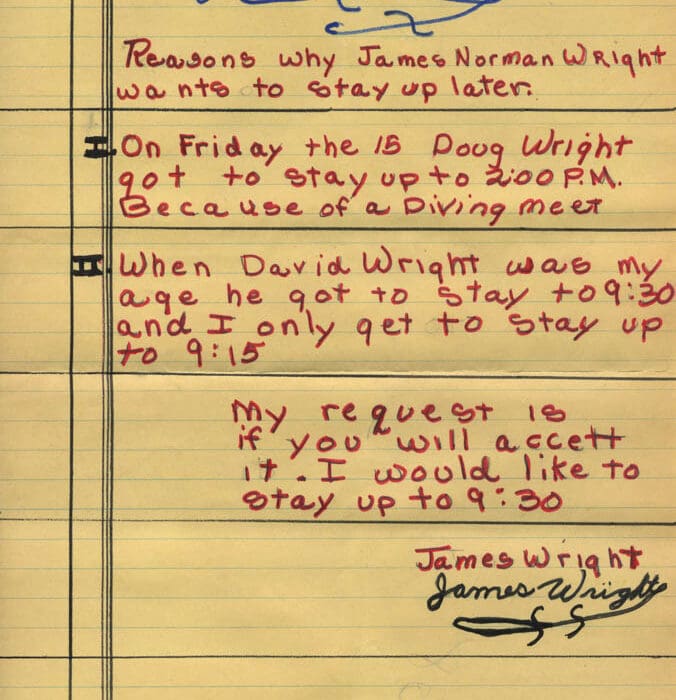 Reasons why James Norman Wright
wants to stay up later.
I. On Friday the 15 Doug Wright
got to stay up to 2:00 P.M.
Because of a Diving meet
II. When David Wright was my
age he got to stay to 9:30
and I only get to stay up
to 9:15
My request is
if you will accett
it. I would like to
stay up to 9:30
James Wright
James Wright